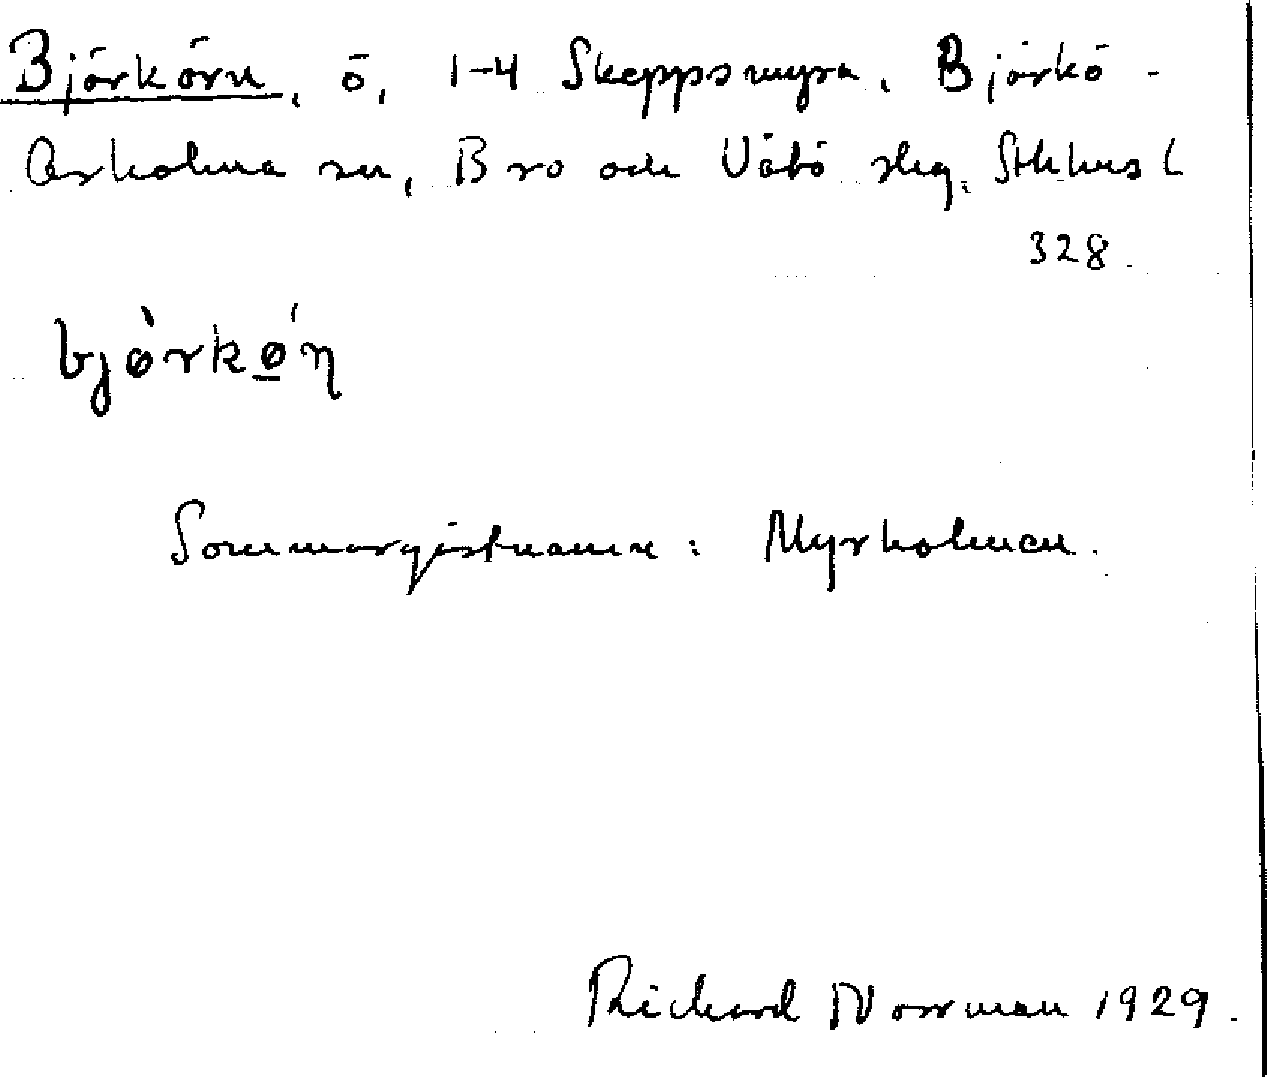 Björkörn, ö, 1-4 Skeppsmyra, Björkö-
Arholma sn, Bro och Vätö slg, Sthlms l
328.
bjø̀rkǿ̱ń
Sommargästnamn: Myrholmen.
Richard Norrman 1929.